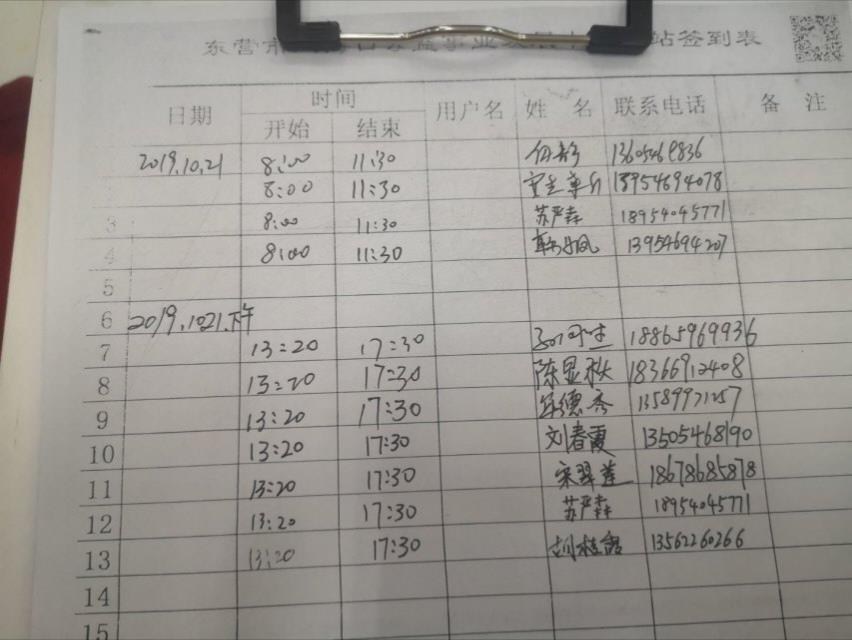 东营市 站签到表
日期 时间 用户名 姓 名 联系电话 备 注
开始 结束
2019.10.21 8:00 11:30 13605469836
8:00 11:30 18954694078
3 8:00 11:30 苏严森 18954045771
4 8:00 11:30 13954694207
5
6 2019.1021.下午
7 13:20 17:30 18865969936
8 13:20 17:30 陈显秋 18366912408
9 13:20 17:30 德秀 13589971257
10 13:20 17:30 刘春霞 13505468190
11 13:20 17:30 宋翠莲 18678685878
12 13:20 17:30 苏严森 18954045771
13 13:20 17:30 胡桂 13562260266
14
15